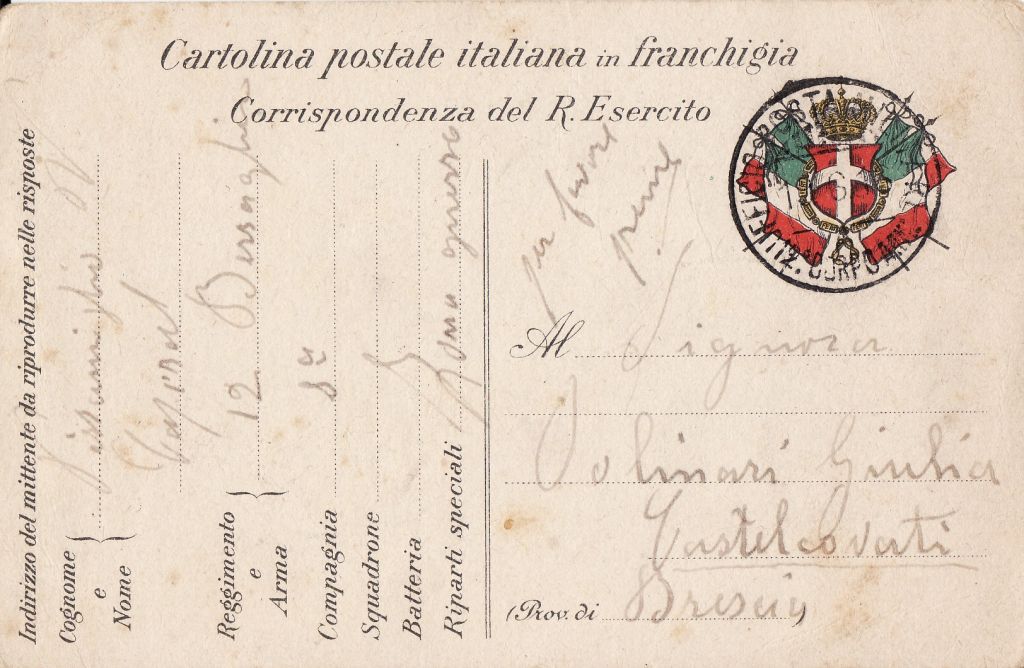 Cartolina postale italiana in franchigia
Corrispondenza del R. Esercito
Indirizzo del mittente da riprodurre nelle risposte
Cognome
e
Nome
Reggimento
e
Arma
12 Bersaglieri
Compagnia 8ª
Squadrone
Batteria
Riparti speciali Zona guerra
per favore
Al Signora
Polinari Giulia
Castelcovati
(Prov. di Brescia)